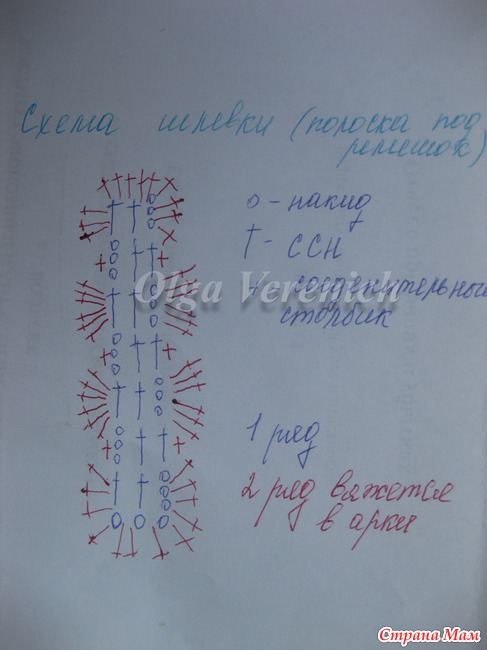 Схема шлевки (полоска под
ремешок)
о - накид
† - ССН
Olga Verenich
+ соеденительный
столбик
1 ряд
2 ряд вяжется
в арки
Страна Мам